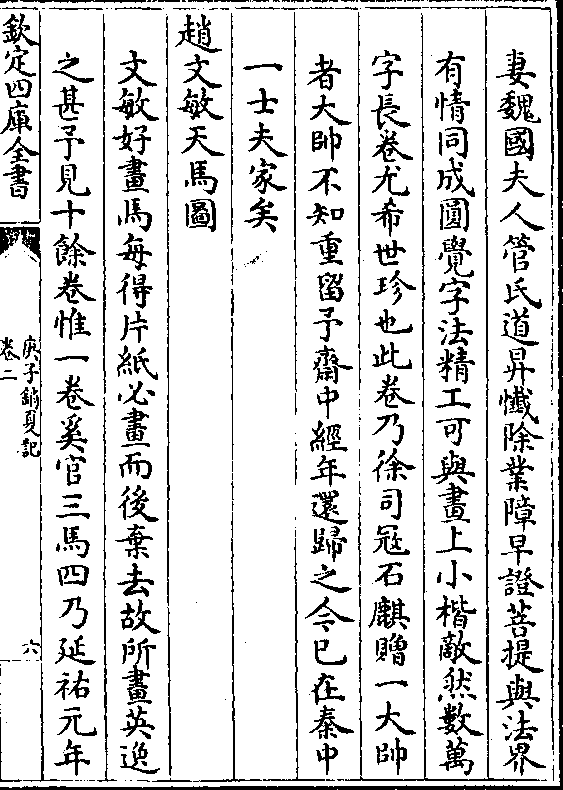 妻魏國夫人管氏道昇懺除業障早證菩提與法界
有情同成圓覺字法精工可與畫上小楷敵然數萬
字長卷尤希世珍也此卷乃徐司寇石麒贈一大帥
者大帥不知重留予齋中經年還歸之今已在秦中
一士夫家矣
趙文敏天馬圖
文敏好畫馬每得片紙必畫而後棄去故所畫英逸
之甚予見十餘卷惟一卷奚官三馬四乃延祐元年
欽定四庫全書
庚子銷夏記
卷二
六